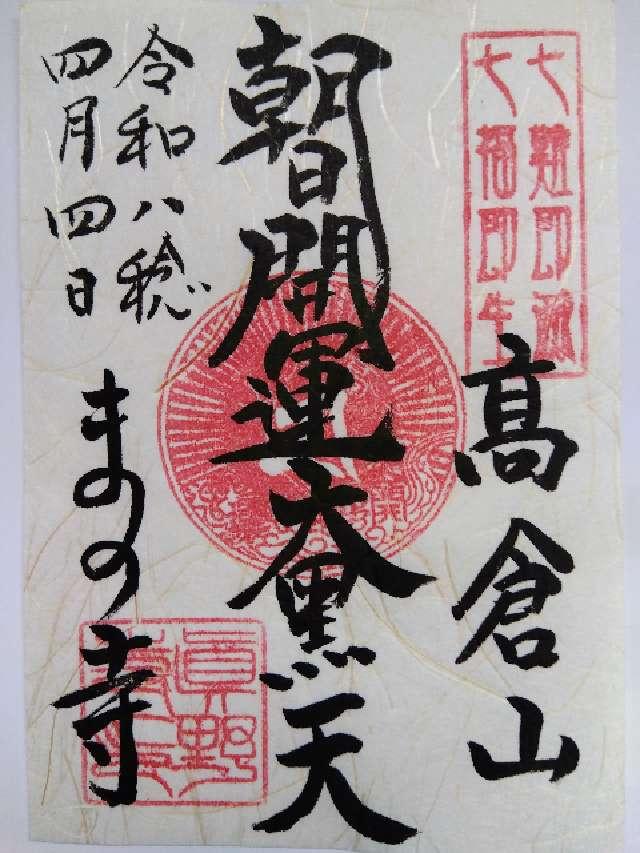 七難即滅
七福即生
高倉山
朝日開運大黒天
令和八稔
四月四日
まの寺
眞野